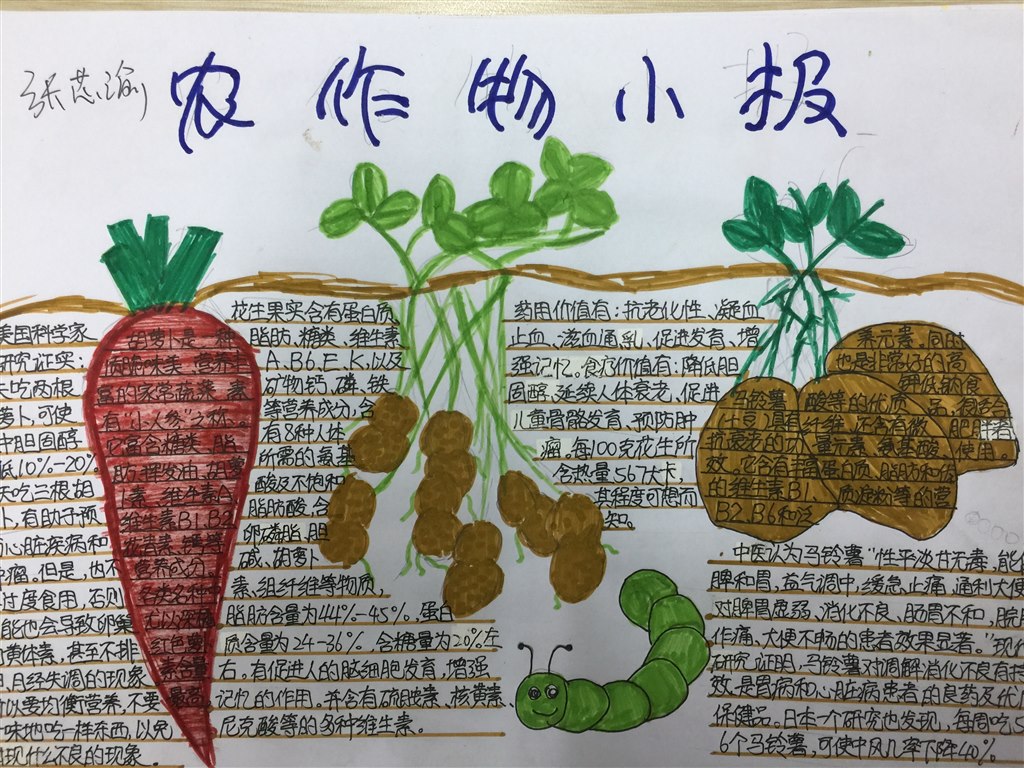 张慈瑜
农作物小报
美国科学家
研究证实:
天吃两根
萝卜,可使
中胆固醇
低10%-20%
天吃三根胡
卜,有助于预
心脏疾病和
肿瘤。但是,也不
过度食用,否则
能也会导致卵巢
黄体素,甚至不排
月经失调的现象
以要均衡营养,不要
味地吃一样东西,以免
现什么不良的现象。
胡萝卜是一种
质脆味美、营养丰
富的家常蔬菜,素
有“小人参”之称。
它富含糖类、脂
肪、挥发油、胡萝
卜素、维生素A、
维生素B1、B2、
花青素、
营养成分
红色
素含量
最高
花生果实含有蛋白质、
脂肪、糖类、维生素
A、B6、E、K、以及
矿物钙、磷、铁
等营养成分,含
有8种人体
所需的氨基
酸及不饱和
脂肪酸,含
卵磷脂、胆
碱、胡萝卜
素、组纤维等物质,
脂肪含量为44%-45%,蛋白
质含量为24-36%,含糖量为20%左
右。有促进人的脑细胞发育,增强
记忆的作用。并含有硫胺素、核黄素、
尼克酸等的多种维生素。
药用价值有:抗老化性、凝血
止血、滋血通乳、促进发育、增
强记忆。食疗价值有:降低胆
固醇、延续人体衰老、促进
儿童骨骼发育、预防肿
瘤。每100克花生所
含热量567大卡,
其程度可想而
知。
马铃薯
(土豆)具有
抗衰老的功
效。它含有丰富
的维生素B1、
B2、B6和泛
酸等的优质
纤维,还含有微
量元素、氨基酸、
蛋白质、脂肪和优
质淀粉等的营
养元素,同时
也是非常好的高
钾低钠食
品,很适合
肥胖者
使用。
中医认为马铃薯“性平淡甘无毒,能
脾和胃,益气调中,缓急止痛,通利大便
对脾胃虚弱、消化不良、肠胃不和、脘
作痛、大便不畅的患者效果显著。”现
研究证明,马铃薯对调解消化不良有
效,是胃病和心脏病患者的良药及优
保健品。日本一个研究也发现,每周吃5
6个马铃薯,可使中风几率下降40%。